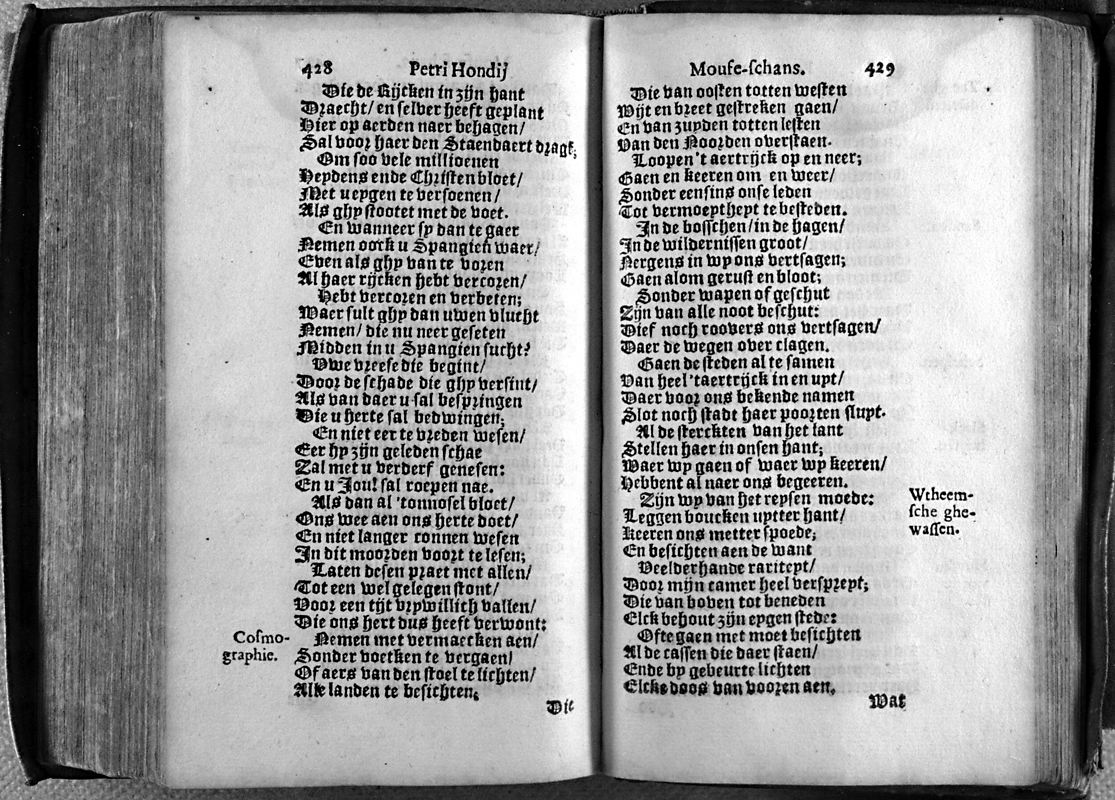 428 Petri Hondij
Die de Rijcken in zijn hant
Draecht/ en selber heeft geplant
Hier op aerden naer behagen/
Sal voor haer den Staendaert dragt;
Om soo vele millioenen
Heydens ende Christen bloet/
Met u eygen te versoenen/
Als ghy stootet met de voet.
En wanneer sy dan te gaer
Nemen oock u Spangien waer/
Even als ghy van te voren
Al haer rijcken hebt vercoren/
Hebt vercoren en verbeten;
Waer sult ghy dan uwen vlucht
Nemen/ die nu neer geseten
Midden in u Spangien sucht?
Uwe vreese die begint/
Door de schade die ghy versint/
Als van daer u sal bespringen
Die u herte sal bedwingen;
En niet eer te vreden wesen/
Eer hy zijn geleden schae
Zal met u verderf genesen:
En u Jou! sal roepen nae.
Als dan al 'tonnosel bloet/
Ons wee aen ons herte doet/
En niet langer connen wesen
In dit moorden voort te lesen;
Laten desen praet met allen/
Tot een wel gelegen stont/
Voor een tijt vrywillich vallen/
Die ons hert dus heeft verwont:
Cosmo-
graphie.
Nemen met vermaecken aen/
Sonder voetken te vergaen/
Of aers van den stoel te lichten/
Alle landen te besichten,
Die
Mouse-schans. 429
Die van oosten totten westen
Wijt en breet gestreken gaen/
En van zuyden totten lesten
Van den Noorden overstaen.
Loopen 't aertrijck op en neer;
Gaen en keeren om en weer/
Sonder eensins onse leden
Tot vermoeytheyt te besteden.
In de bosschen/ in de hagen/
In de wildernissen groot/
Nergens in wy ons vertsagen;
Gaen alom gerust en bloot;
Sonder wapen of geschut
Zijn van alle noot beschut:
Dief noch roovers ons vertsagen/
Daer de wegen over clagen.
Gaen de steden al te samen
Van heel 'taertrijck in en uyt/
Daer voor ons bekende namen
Slot noch stadt haer poorten sluyt.
Al de sterckten van het lant
Stellen haer in onsen hant;
Waer wy gaen of waer wy keeren/
Hebbent al naer ons begeeren.
Zijn wy van het reysen moede:
Leggen boucken uytter hant/
Keeren ons metter spoede;
En besichten aen de want
Veelderhande raritept/
Door mijn camer heel verspreyt;
Die van boven tot beneden
Elck behout zijn eygen stede:
Ofte gaen met moet besichten
Al de cassen die daer staen/
Ende by gebeurte lichten
Elcke doos van vooren aen,
Wtheem-
sche ghe-
wassen.
Wat